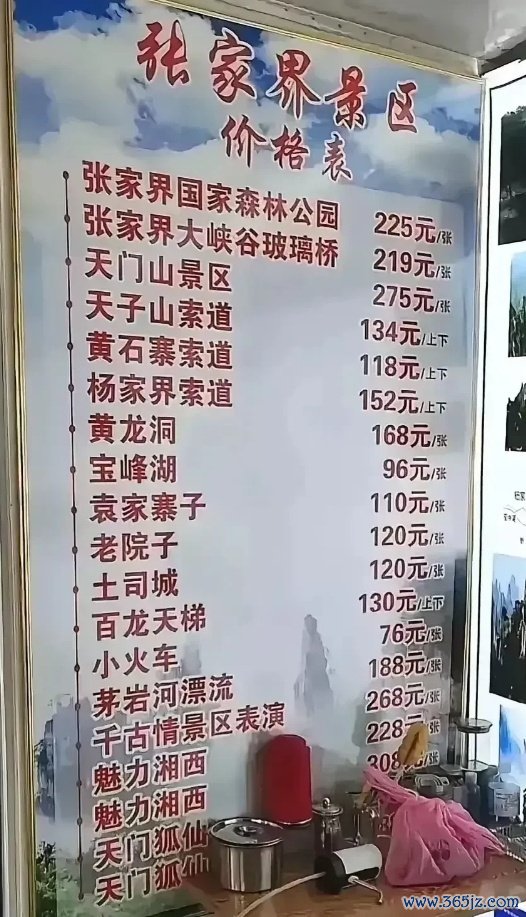 张家界景区
价格表
张家界国家森林公园 225元/张
张家界大峡谷玻璃桥 219元/张
天门山景区 275元/张
天子山索道 134元/上下
黄石寨索道 118元/上下
杨家界索道 152元/上下
黄龙洞 168元/张
宝峰湖 96元/张
袁家寨子 110元/张
老院子 120元/张
土司城 120元/张
百龙天梯 130元/上下
小火车 76元/张
茅岩河漂流 188元/张
千古情景区表演 268元/张
魅力湘西 228元
魅力湘西
天门狐仙
天门狐仙
www.365jz.com